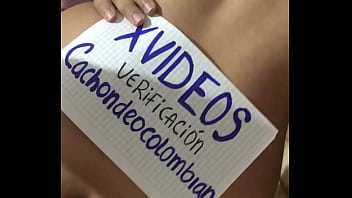 XVIDEOS
VERIFICACIÓN
Cachondeocolombian